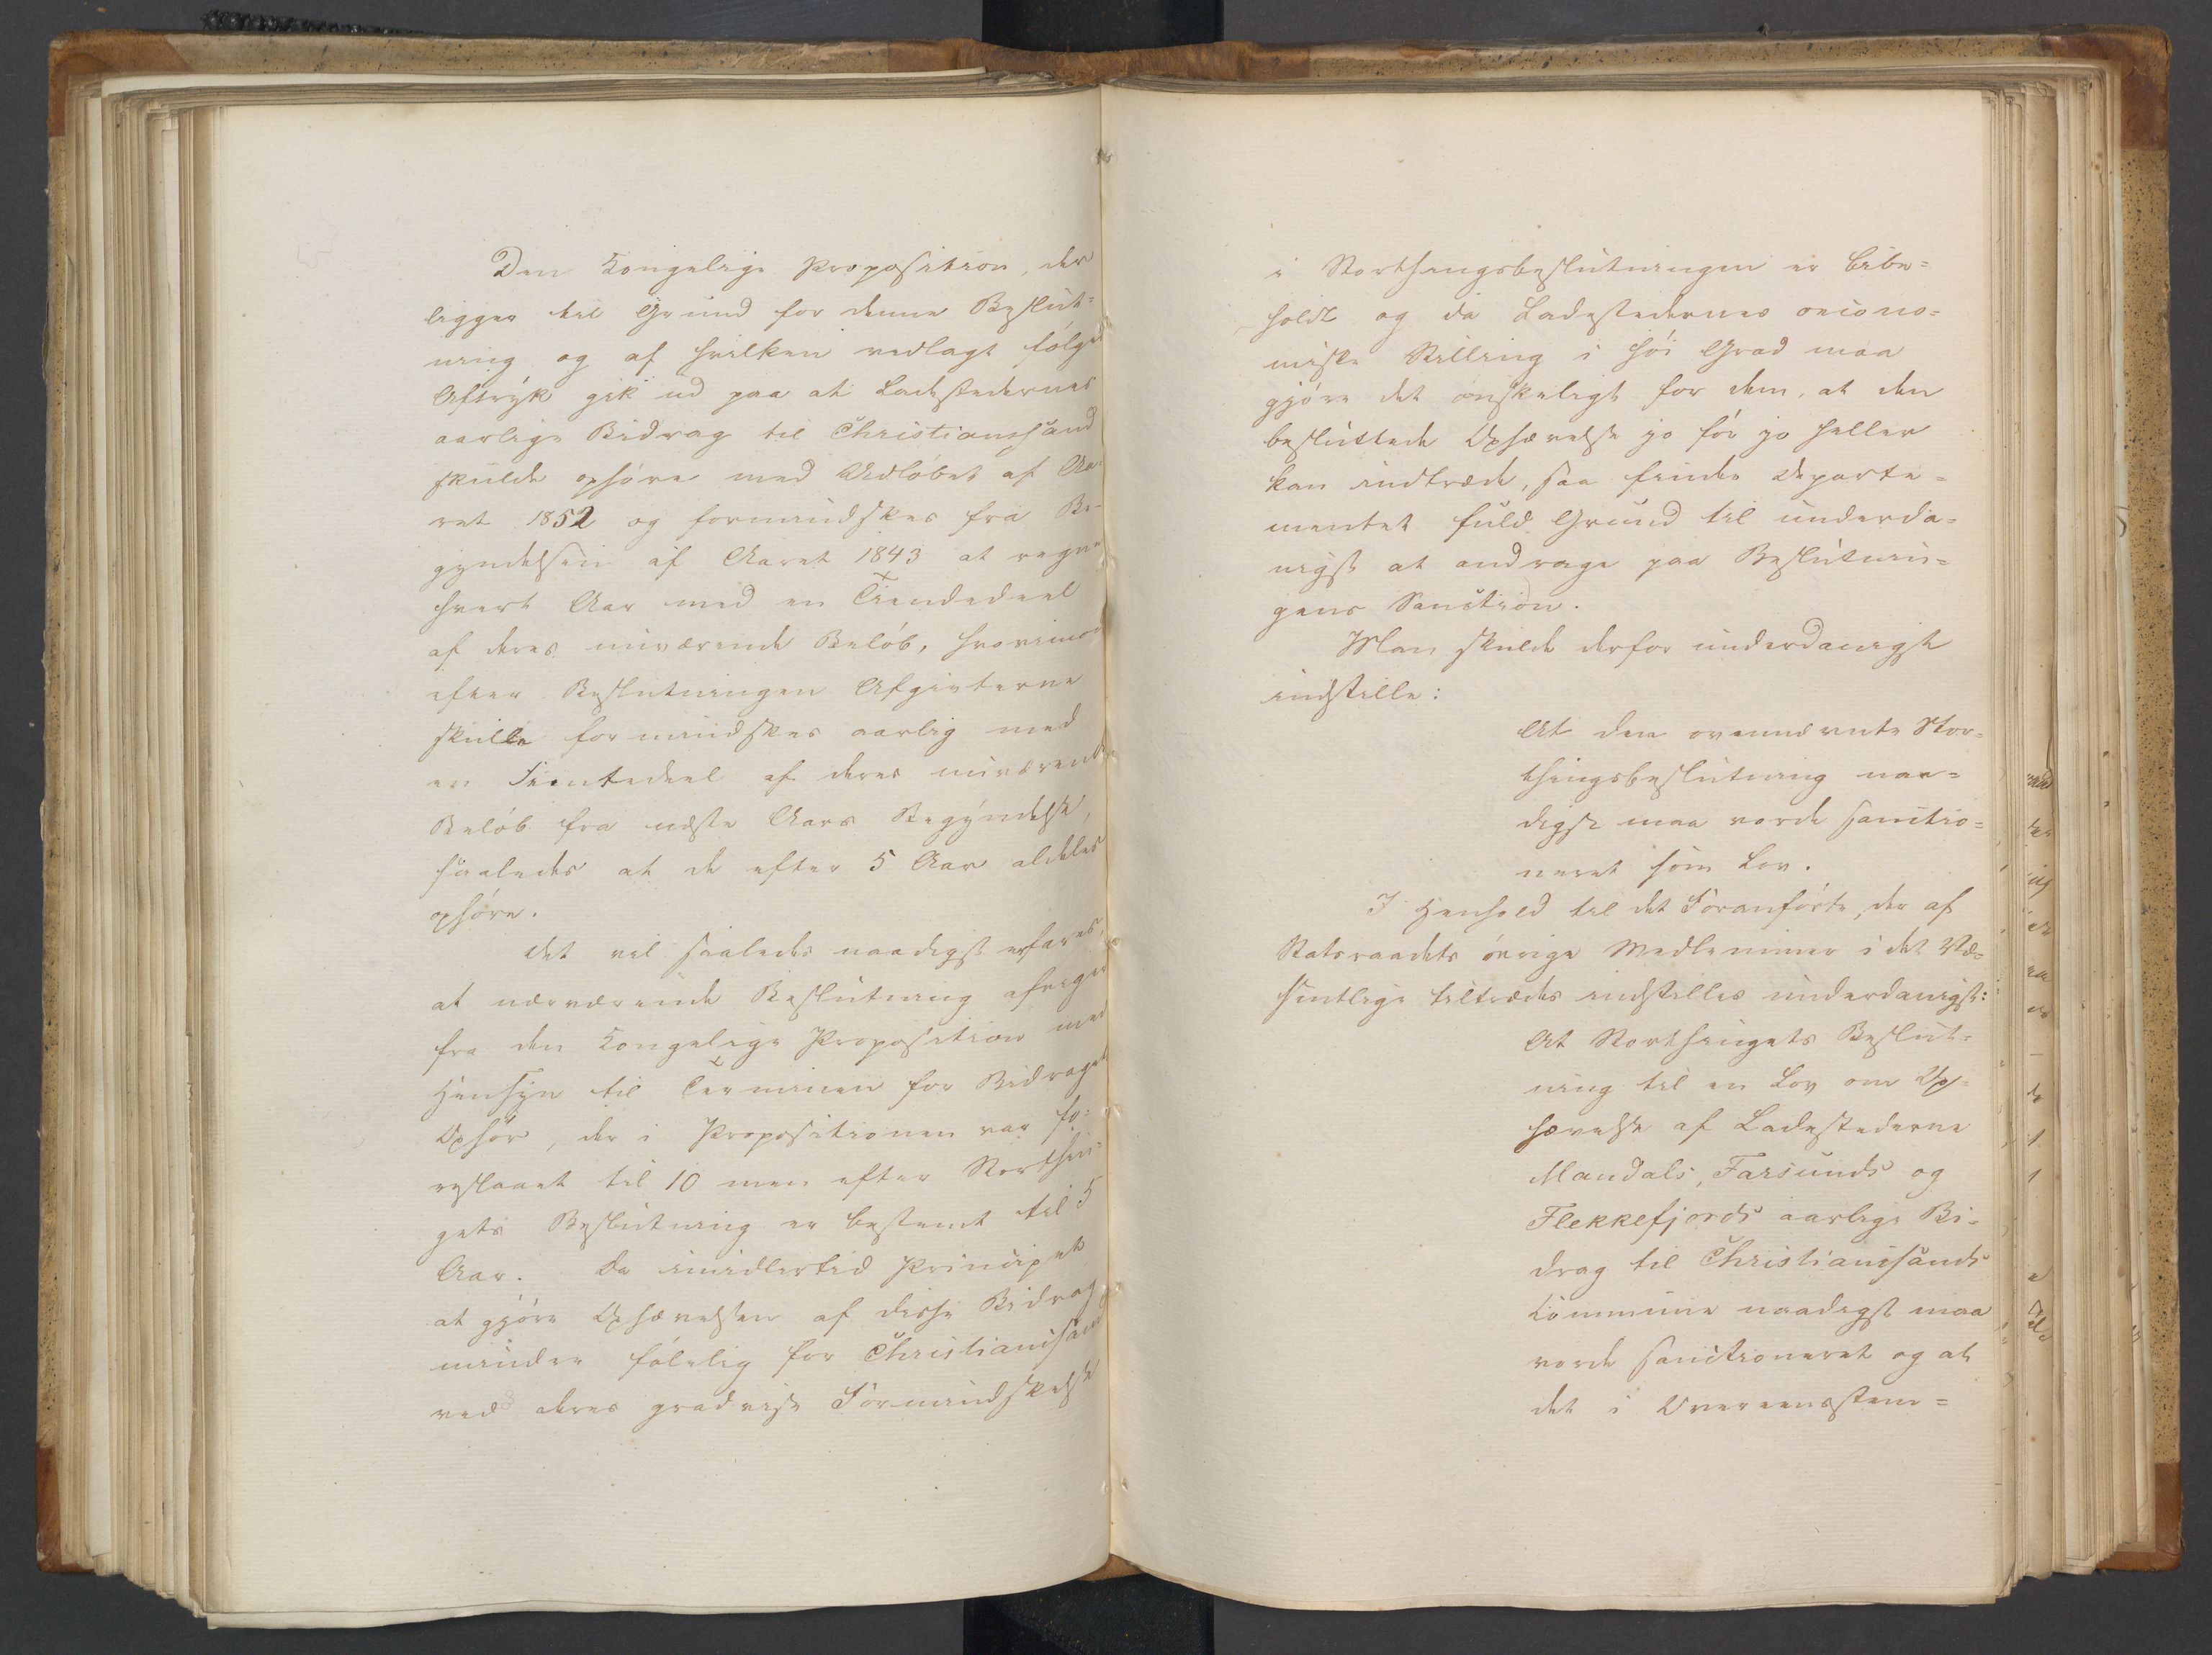 Den Kongelige Proposition, der
ligger til Grund for denne Beslut=
ning og af hvilken vedlagt følger
Aftryk gik ud paa at Ladestedernes
aarlige Bidrag til Christianssand
skulde ophøre med Udløbet af Aa-
ret 1852 og formindskes fra Be-
gyndelsen af Aaret 1843 at regne
hvert Aar med en Tiendedeel
af deres nuværende Beløb, hvorimod
efter Beslutningen Afgivterne
skulle formindskes aarlig med
en Femtedeel af deres nuværende
Beløb fra næste Aars Begyndelse,
saaledes at de efter 5 Aar aldeles
ophøre.
Det vil saaledes naadigst erfares,
at nærværende Beslutning afviger
fra den Kongelige Proposition med
Hensyn til Terminen for Bidragets
Ophør, der i Propositionen var fo=
reslaaet til 10 men efter Storthin=
gets Beslutning er bestemt til 5
Aar. Da imidlertid Principet
at gjøre Ophævelsen af disse Bidrag
mindre følelig for Christianssand
ved deres gradvise Formindskelse
i Storthingsbeslutningen er bibe=
holdt og da Ladestedernes oecono=
miske Stilling i høi Grad maa
gjøre det ønskeligt for dem, at den
besluttede Ophævelse jo før jo heller
kan indtræde, saa finder Departe=
mentet fuld Grund til underda=
nigst at andrage paa Beslutnin=
gens Sanction.
Man skulde derfor underdanigst
indstille:
At den ovennævnte Stor=
thingsbeslutning naa=
digst maa vorde sanctio=
neret som Lov.
I Henhold til det Foranførte, der af
Statsraadets øvrige Medlemmer i det Væ=
sentlige tiltrædes indstilles underdanigst:
At Storthingets Beslut=
ning til en Lov om Op=
hævelse af Ladestederne
Mandals, Farsunds og
Flekkefjords aarlige Bi=
drag til Christianssands
Commune naadigst maa
vorde sanctioneret og at
det i Overeensstem=